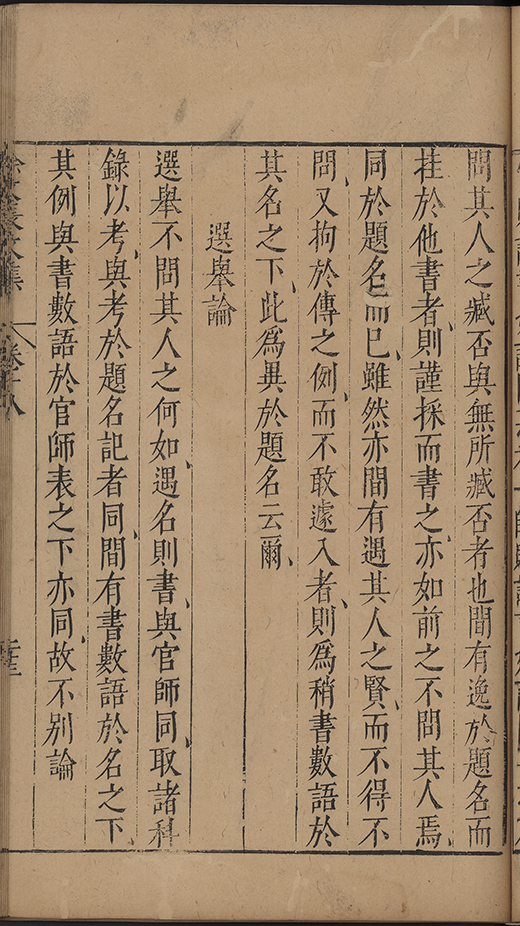 問其人之臧否與無所臧否者也間有逸於題名而
挂於他書者則謹採而書之亦如前之不問其人焉
同於題名而已雖然亦間有遇其人之賢而不得不
問又拘於傳之例而不敢遽入者則為稍書數語於
其名之下此為異於題名云爾
選舉論
選舉不問其人之何如遇名則書與官師同取諸科
錄以考與考於題名記者同間有書數語於名之下
其例與書數語於官師表之下亦同故不別論
卷十八